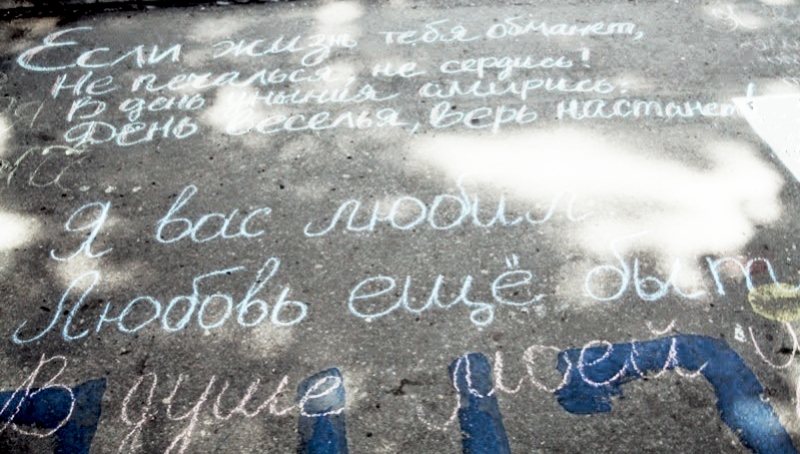 Если жизнь тебя обманет,
Не печалься, не сердись!
В день уныния смирись:
День веселья, верь, настанет!
Я вас любил
Любовь ещё быт
В душе моей у